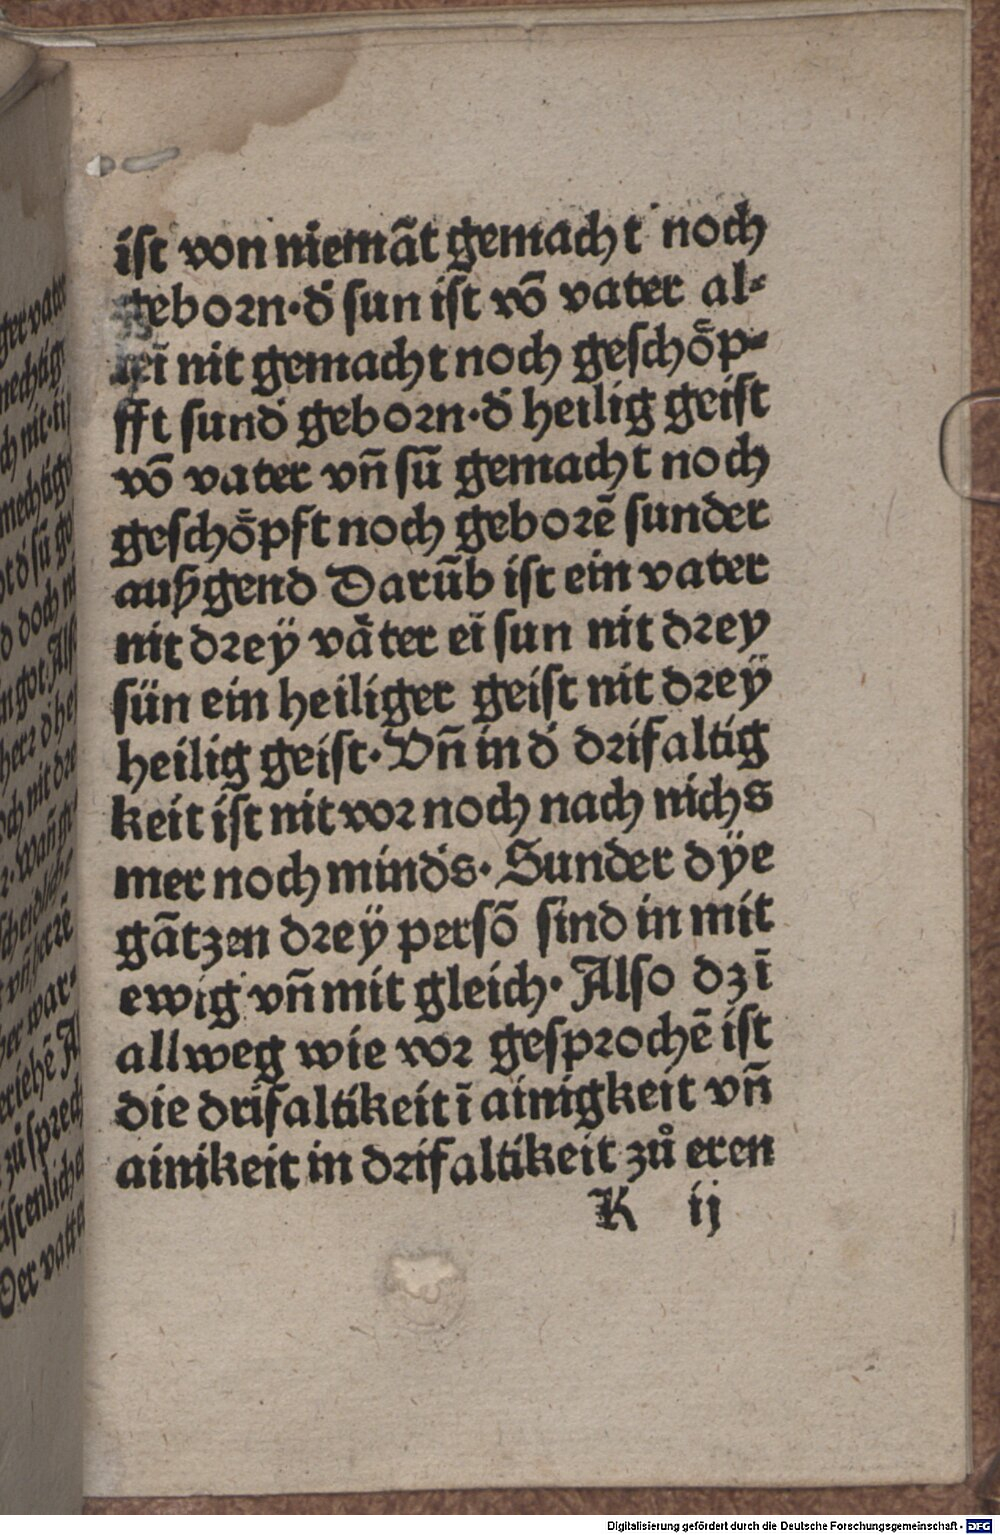 ist von niemãt gemacht noch
geborn·d̕ sun ist võ vater al⸗
leĩ nit gemacht noch geschöp⸗
fft sund̕ geborn·d̕ heilig geist
võ vater vñ sũ gemacht noch
geschöpft noch geborẽ sunder
außgend Darũb ist ein vater
nit dreÿ väter eĩ sun nit drey
sün ein heiliger geist nit dreÿ
heilig geist·Vñ in d̕ drifaltig
keit ist nit vor noch nach nichs
mer noch mind̕s· Sunder dÿe
gãtzen dreÿ persõ sind in mit
ewig vñ mit gleich· Also dz ĩ
allweg wie vor gesprochẽ ist
die drifaltikeit ĩ ainigkeit vñ
ainikeit in drifaltikeit zů eren
K ij
Digitalisierung gefördert durch die Deutsche Forschungsgemeinschaft - DFG